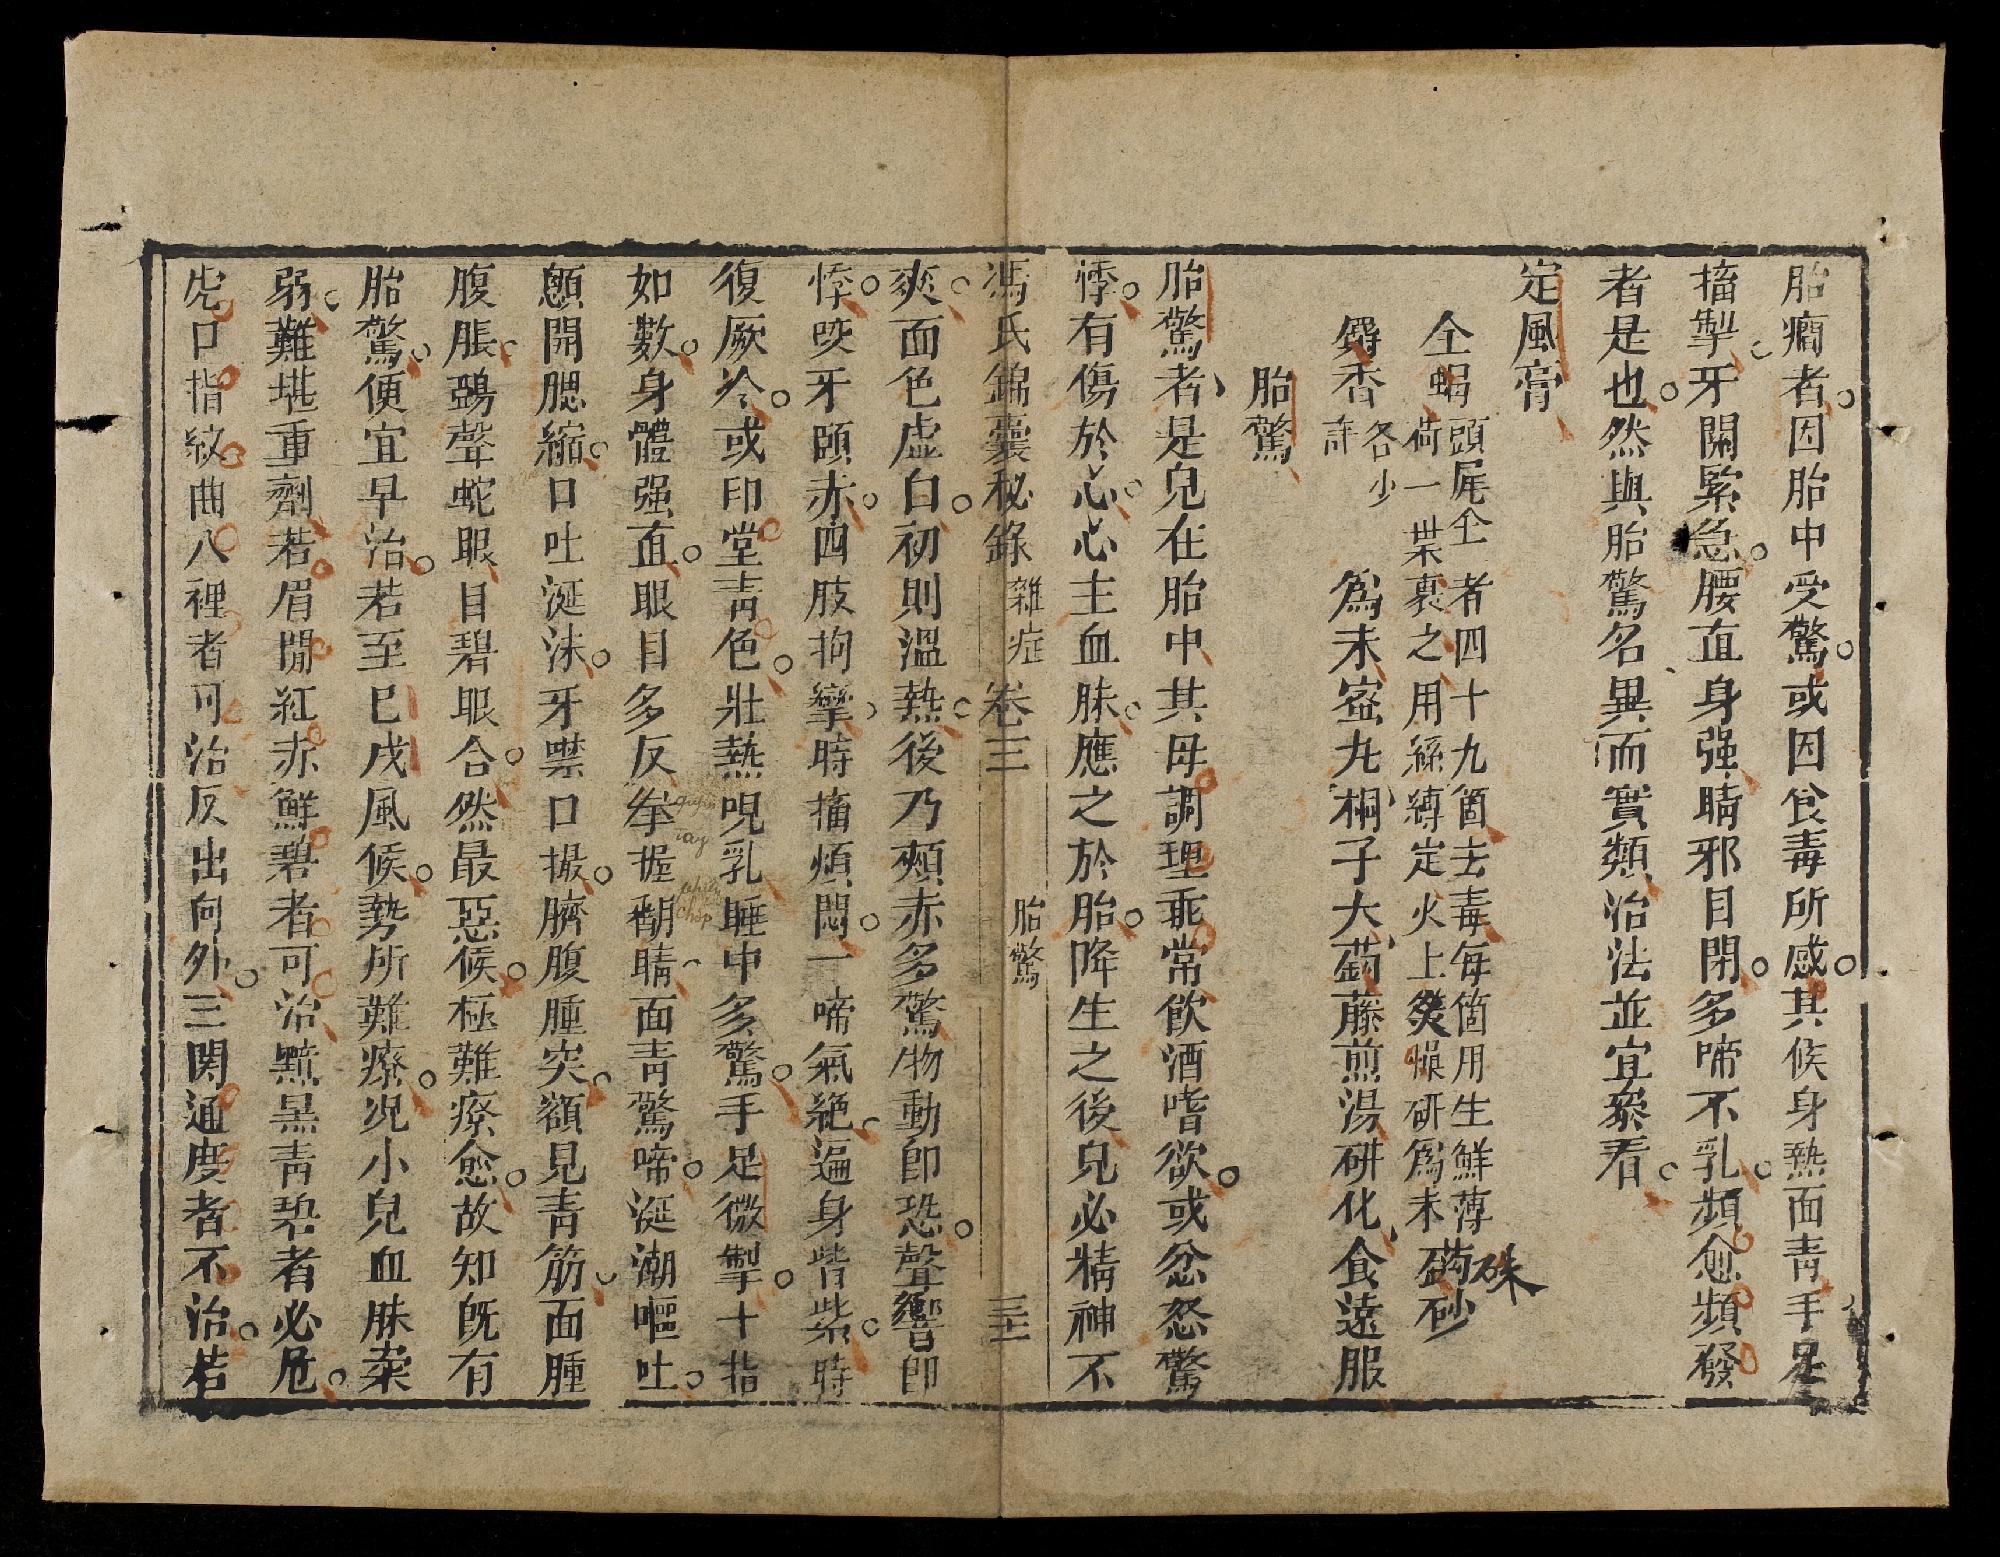 胎癎者因胎中受驚或因食毒所感其候身熱面青手足
搐掣牙關緊急腰直身强睛邪目閉多啼不乳頻愈頻發
者是也然與胎驚名異而實類治法並宜叅看
定風膏
全蝎頭尾全者四十九箇去毒每箇用生鮮薄
荷一葉裹之用絲縛定火上炙燥研爲末 硃砂
麝香各少許 爲末宻丸桐子大鈎藤煎湯研化食遠服
胎驚
胎驚者是兒在胎中其母調理乖常飲酒嗜欲或忿怒驚
悸有傷於心心主血脉應之於胎降生之後兒必精神不
馮氏錦囊秘錄 雜症 卷三 胎驚 三士
爽面色虛白初則溫熱後乃頰赤多驚物動即恐聲響即
悸咬牙頤赤四肢拘攣時搐煩悶一啼氣絶遍身皆紫時
復厥冷或印堂青色壯熱吮乳睡中多驚手足微掣十指
如數身體强直眼目多反拳握翻睛面青驚啼涎潮嘔吐
顖開腮縮口吐涎沫牙噤口撮臍腹腫突額見青筋面腫
腹脹鵶聲蛇眼目碧眼合然最惡候極難療愈故知旣有
胎驚便宜早治若至已成風候勢所難療况小兒血脉柔
弱難堪重劑若眉間紅赤鮮碧者可治黯黑青碧者必危
虎口指紋曲入裡者可治反出向外三関通度者不治若